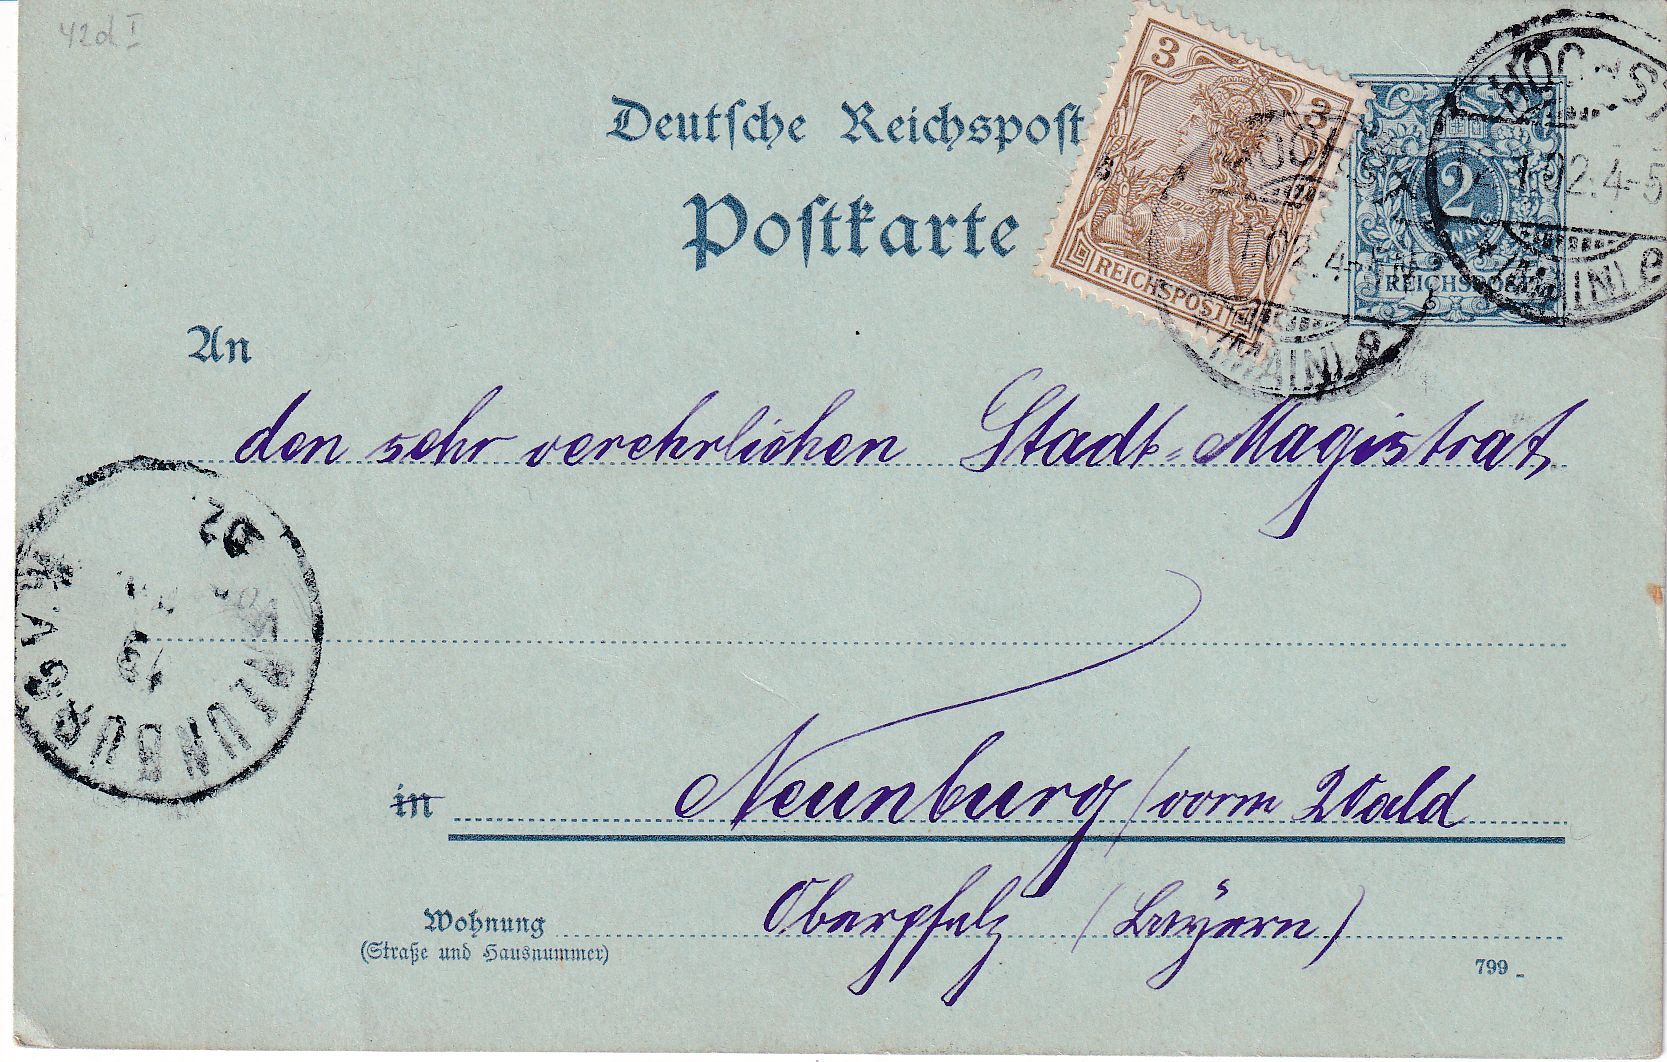 42d I
Deutsche Reichspost
Postkarte
3 3
REICHSPOST
2
REICHSPOST
HÖCHST
1.02.4-5N
(MAIN) e
HÖCHST
1.02.4-5
(MAIN) e
An
den sehr verehrlichen Stadt-Magistrat,
in Neunburg / vorm Wald
Wohnung Oberpfalz (Bayern)
(Straße und Hausnummer)
799
13
02